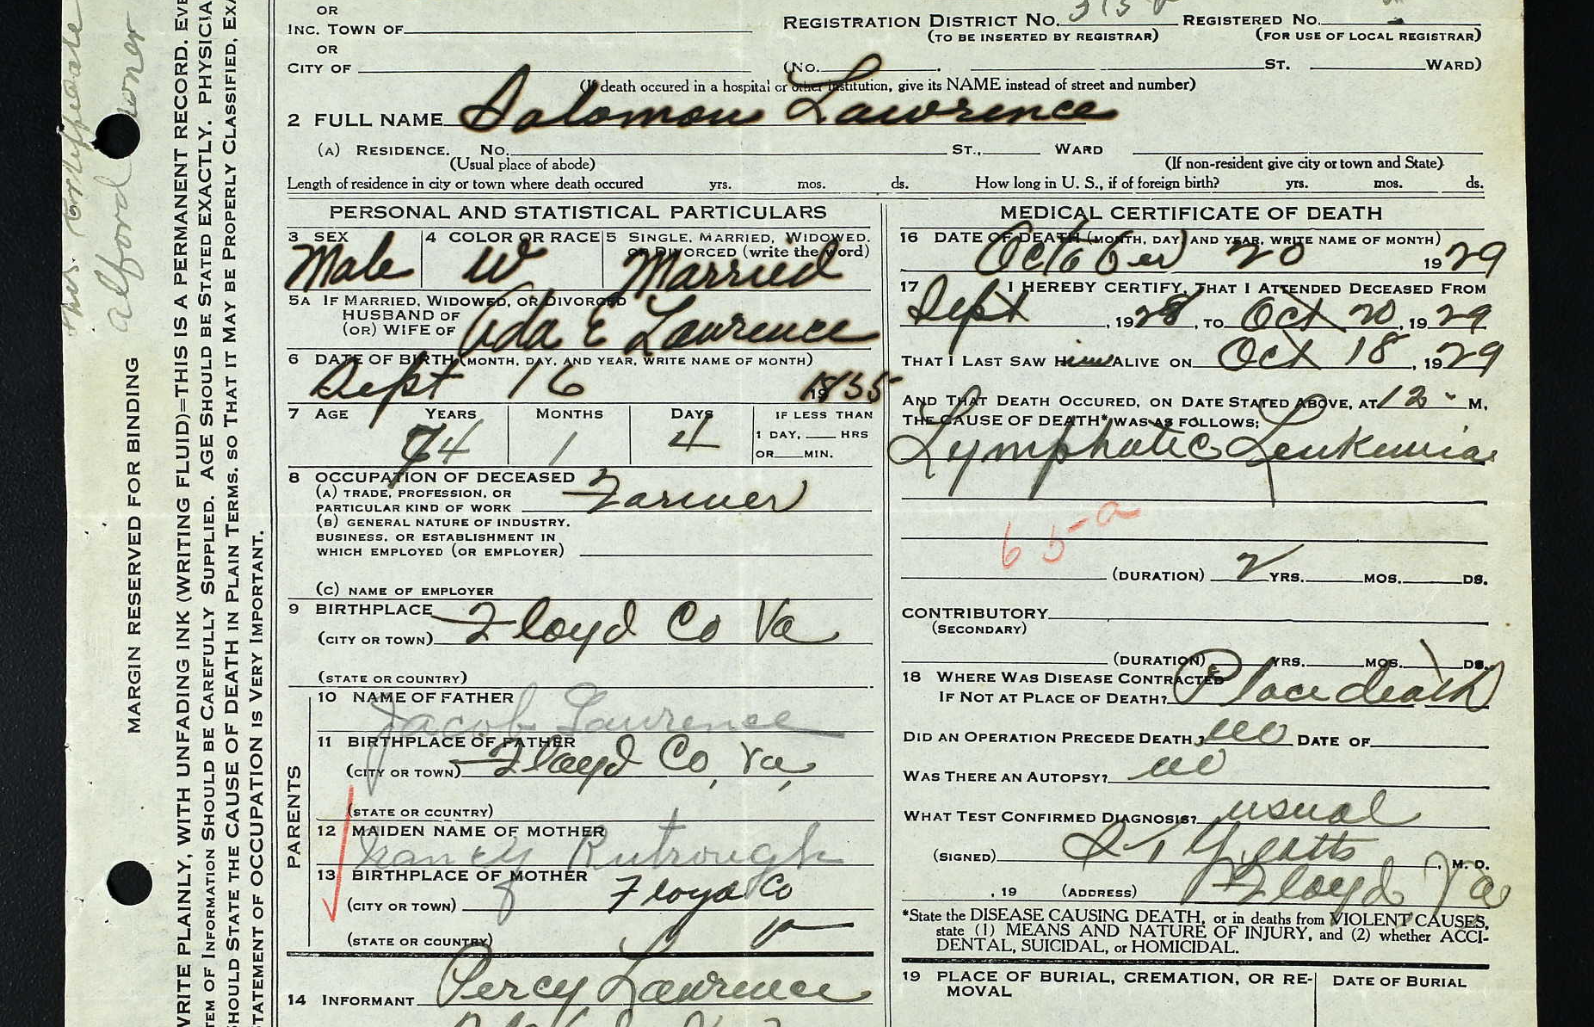 OR
INC. TOWN OF
REGISTRATION DISTRICT NO. REGISTERED NO.
(TO BE INSERTED BY REGISTRAR) (FOR USE OF LOCAL REGISTRAR)
OR
CITY OF (NO. ST. WARD)
(If death occured in a hospital or other institution, give its NAME instead of street and number)
2 FULL NAME Solomon Lawrence
(A) RESIDENCE. NO. ST., WARD
(Usual place of abode) (If non-resident give city or town and State)
Length of residence in city or town where death occured yrs. mos. ds. How long in U. S., if of foreign birth? yrs. mos. ds.
PERSONAL AND STATISTICAL PARTICULARS
3 SEX 4 COLOR OR RACE 5 SINGLE, MARRIED, WIDOWED,
OR DIVORCED (write the word)
Male W Married
5A IF MARRIED, WIDOWED, OR DIVORCED
HUSBAND OF
(OR) WIFE OF Ada E Lawrence
6 DATE OF BIRTH (MONTH, DAY, AND YEAR, WRITE NAME OF MONTH)
Sept 16 1855
7 AGE YEARS MONTHS DAYS IF LESS THAN
74 1 4 1 DAY, HRS
OR MIN.
8 OCCUPATION OF DECEASED
(A) TRADE, PROFESSION, OR
PARTICULAR KIND OF WORK Farmer
(B) GENERAL NATURE OF INDUSTRY,
BUSINESS, OR ESTABLISHMENT IN
WHICH EMPLOYED (OR EMPLOYER)
(C) NAME OF EMPLOYER
9 BIRTHPLACE
(CITY OR TOWN) Floyd Co Va
(STATE OR COUNTRY)
PARENTS
10 NAME OF FATHER
Jacob Lawrence
11 BIRTHPLACE OF FATHER
(CITY OR TOWN) Floyd Co, Va,
(STATE OR COUNTRY)
12 MAIDEN NAME OF MOTHER
Nancy Rutrough
13 BIRTHPLACE OF MOTHER
(CITY OR TOWN) Floyd Co
(STATE OR COUNTRY) V
14 INFORMANT Percy Lawrence
MEDICAL CERTIFICATE OF DEATH
16 DATE OF DEATH (MONTH, DAY) AND YEAR, WRITE NAME OF MONTH)
October 20 1929
17 I HEREBY CERTIFY, THAT I ATTENDED DECEASED FROM
Sept , 1928, TO Oct 20, 1929
THAT I LAST SAW Him ALIVE ON Oct 18, 1929
AND THAT DEATH OCCURED, ON DATE STATED ABOVE, AT 12 - M.
THE CAUSE OF DEATH* WAS AS FOLLOWS:
Lymphatic Leukemia
65-a
(DURATION) 2 YRS. MOS. DS.
CONTRIBUTORY
(SECONDARY)
(DURATION) YRS. MOS. DS.
18 WHERE WAS DISEASE CONTRACTED
IF NOT AT PLACE OF DEATH? Place death
DID AN OPERATION PRECEDE DEATH? no DATE OF
WAS THERE AN AUTOPSY? no
WHAT TEST CONFIRMED DIAGNOSIS? usual
(SIGNED) M. D.
, 19 (ADDRESS) Floyd Va
*State the DISEASE CAUSING DEATH, or in deaths from VIOLENT CAUSES,
state (1) MEANS AND NATURE OF INJURY, and (2) whether ACCI-
DENTAL, SUICIDAL, or HOMICIDAL.
19 PLACE OF BURIAL, CREMATION, OR RE-
MOVAL
DATE OF BURIAL
MARGIN RESERVED FOR BINDING
WRITE PLAINLY, WITH UNFADING INK (WRITING FLUID)=THIS IS A PERMANENT RECORD. EVE
TEM OF INFORMATION SHOULD BE CAREFULLY SUPPLIED. AGE SHOULD BE STATED EXACTLY. PHYSICIA
SHOULD STATE THE CAUSE OF DEATH IN PLAIN TERMS, SO THAT IT MAY BE PROPERLY CLASSIFIED, EXA
STATEMENT OF OCCUPATION IS VERY IMPORTANT.